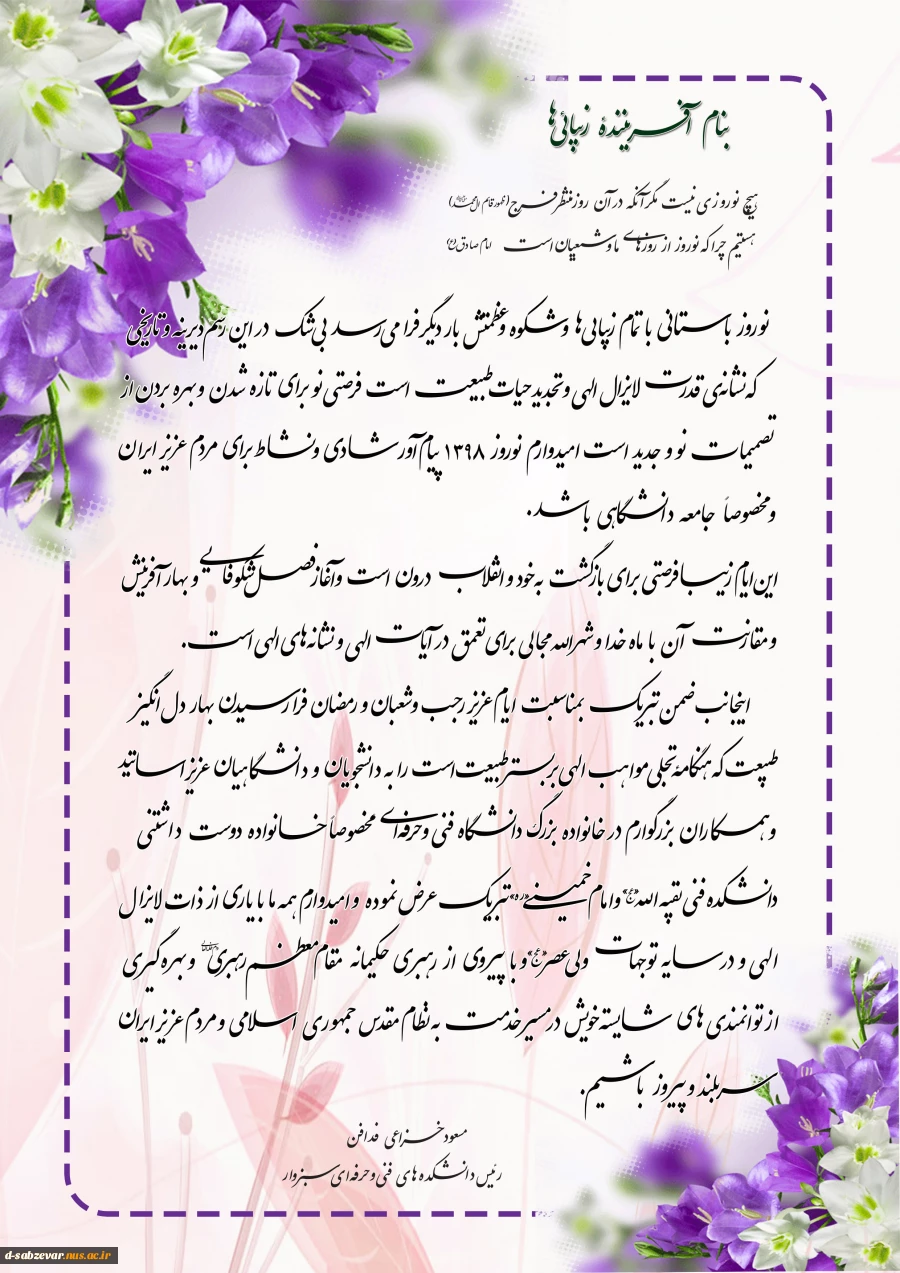 بنام آفریننده زیبائی‌ها
هیچ نوروزی نیست مگر آنکه در آن روز منتظر فرج (ظهور قائم آل محمد)
هستیم چرا که نوروز از روزهای ما و شیعیان است امام صادق (ع)
نوروز باستانی با تمام زیبایی‌ها و شکوه و عظمتش بار دیگر فرا می‌رسد بی‌شک در این رسم دیرینه و تاریخی
که نشانه‌ی قدرت لایزال الهی و تجدید حیات طبیعت است فرصتی نو برای تازه شدن و بهره بردن از
تصمیمات نو و جدید است امیدوارم نوروز ۱۳۹۸ پیام‌آور شادی و نشاط برای مردم عزیز ایران
و مخصوصاً جامعه دانشگاهی باشد.
این ایام زیبا فرصتی برای بازگشت به خود و انقلاب درون است و آغاز فصل شکوفایی و بهار آفرینش
و مقارنت آن با ماه خدا و شهرالله مجالی برای تعمق در آیات الهی و نشانه‌های الهی است.
اینجانب ضمن تبریک بمناسبت ایام عزیز رجب و شعبان و رمضان فرا رسیدن بهار دل انگیز
طبیعت که هنگامهٔ تجلی مواهب الهی بر بستر طبیعت است را به دانشجویان و دانشگاهیان عزیز اساتید
و همکاران بزرگوارم در خانواده بزرگ دانشگاه فنی و حرفه‌ای مخصوصاً خانواده دوست داشتنی
دانشکده فنی بقیه الله (عج) و امام خمینی (ره) تبریک عرض نموده و امیدوارم همه ما با یاری از ذات لایزال
الهی و در سایه توجهات ولی عصر (عج) و با پیروی از رهبری حکیمانه مقام معظم رهبری و بهره گیری
از توانمندی های شایسته خویش در مسیر خدمت به نظام مقدس جمهوری اسلامی و مردم عزیز ایران
سربلند و پیروز باشیم.
مسعود خزاعی فدافن
رئیس دانشکده های فنی و حرفه‌ای سبزوار
d-sabzevar.nus.ac.ir